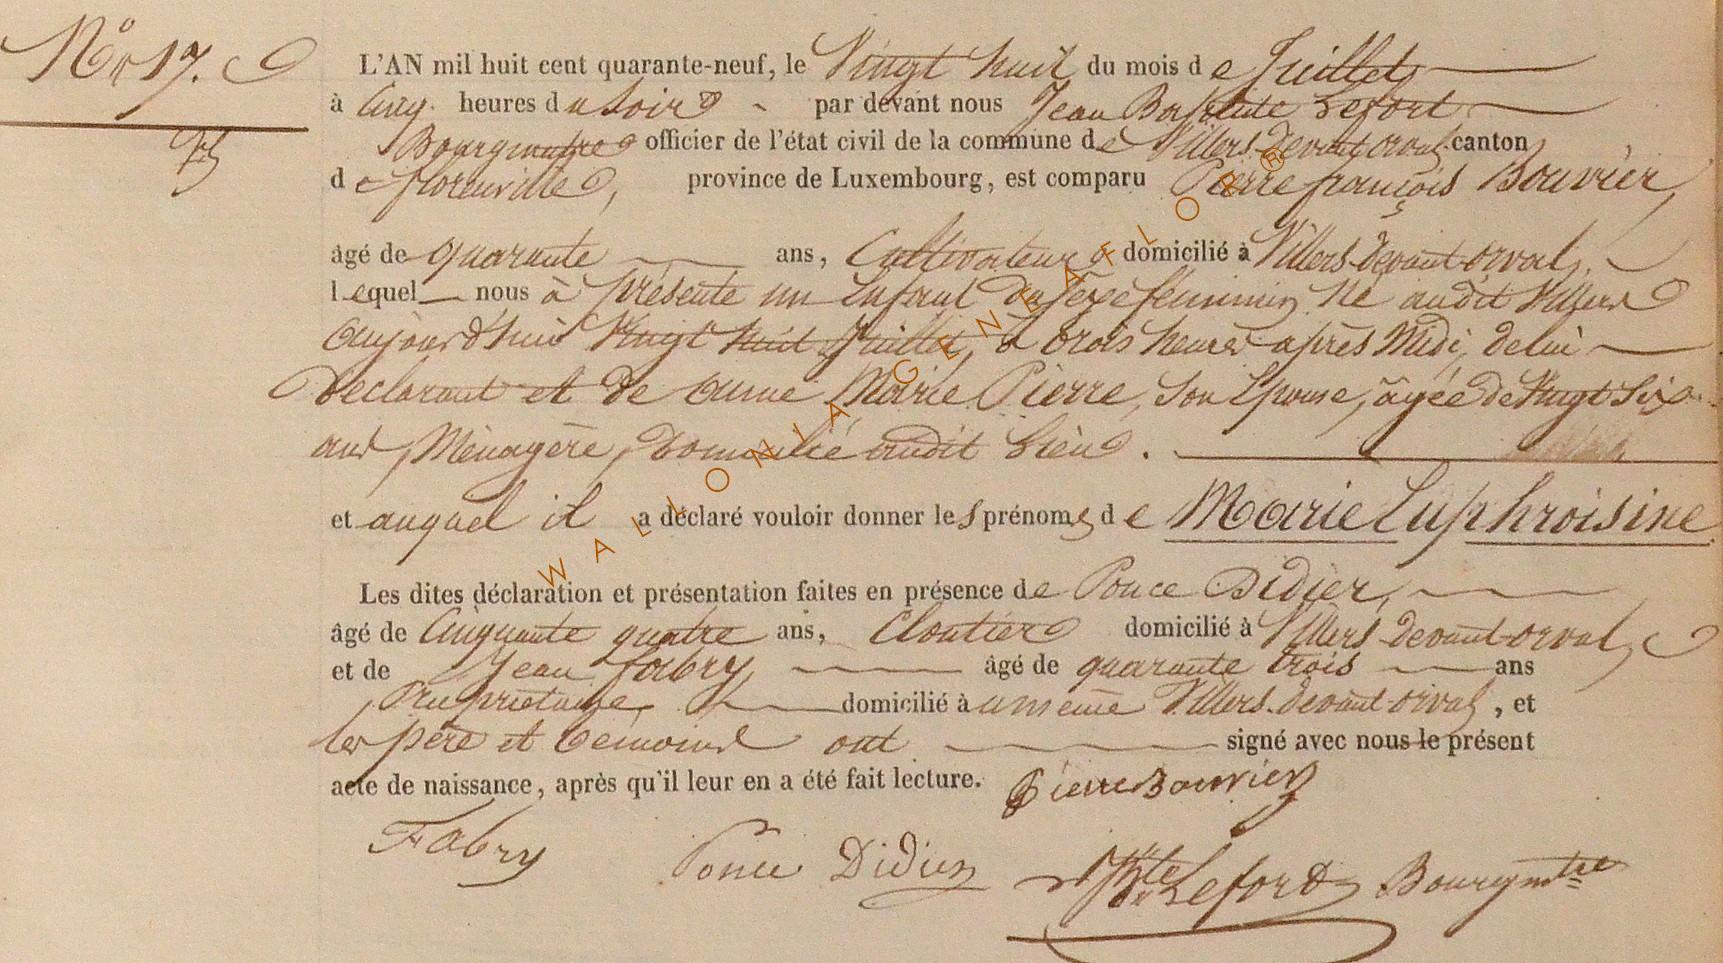 N° 17.
L'AN mil huit cent quarante-neuf, le Vingt huit du mois de Juillet
à Cinq heures du soir par devant nous Jean Baptiste Lefort
Bourgmestre officier de l'état civil de la commune de Villers devant orval canton
de florenville, province de Luxembourg, est comparu Pierre françois Bouvier,
âgé de quarante ans, Cultivateur domicilié à Villers devant orval,
lequel nous à présenté un Enfant du sexe féminin, Né audit Villers
aujourd'hui Vingt huit Juillet, à trois heures après Midi, de lui
Déclarant et de Anne Marie Pierre, son Epouse, âgée de Vingt Six
ans, Ménagère, Domicilié audit Lieu.
et auquel il a déclaré vouloir donner les prénoms de Marie Euphroisine
Les dites déclaration et présentation faites en présence de Ponce Didier,
âgé de Cinquante quatre ans, Cloutier domicilié à Villers devant orval,
et de Jean fabry âgé de quarante trois ans
Propriétaire, domicilié aumême Villers devant orval, et
les père et témoins ont signé avec nous le présent
acte de naissance, après qu'il leur en a été fait lecture. Pierre Bouvier
Fabry Ponce Didier Lefort Bourgmtre
WALLONIA GENEAFLOR ®